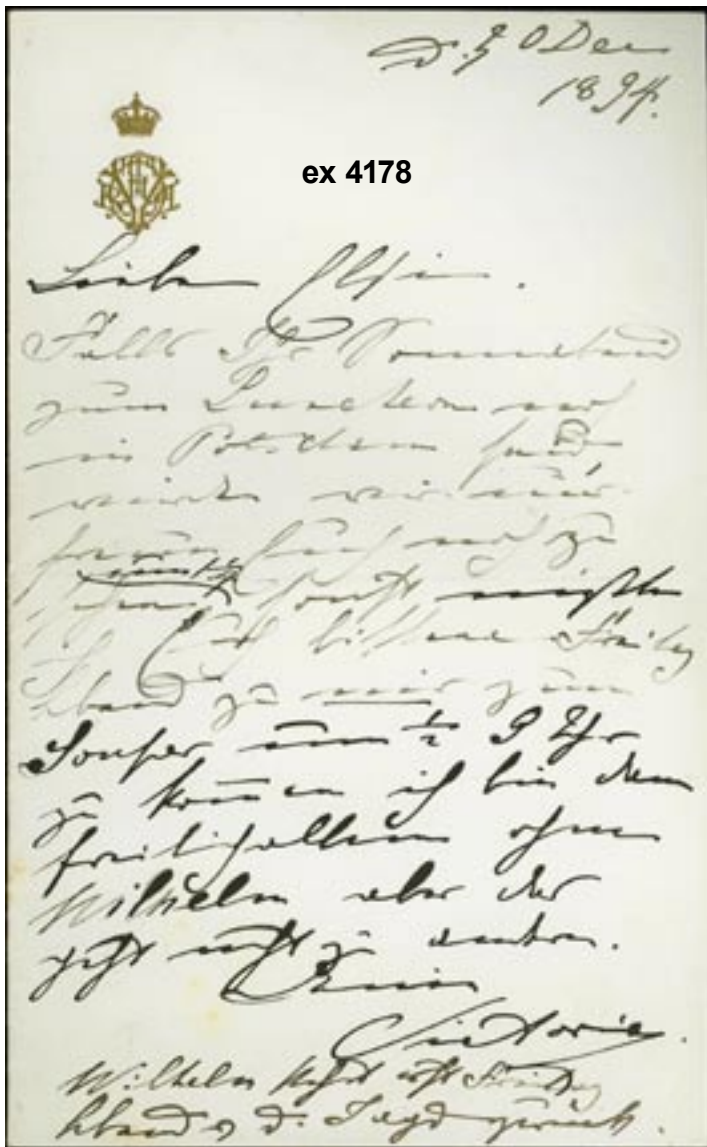 D. 20 Dec
1894.
ex 4178
Liebe Elfie.
Falls Ihr Sonnabend
zum Lunchen noch
in Potsdam seid
würden wir uns
freuen Euch noch zu
sehen sonst möchte
Euch bitten Freitag
Abend zu mir zum
Souper um ½ 9 Uhr
zu kommen ich bin dann
freilich allein ohne
Wilhelm aber das
geht nicht zu ändern.
Deine
Victoria.
Wilhelm kehrt erst Freitag
Abend v. d. Jagd zurück.